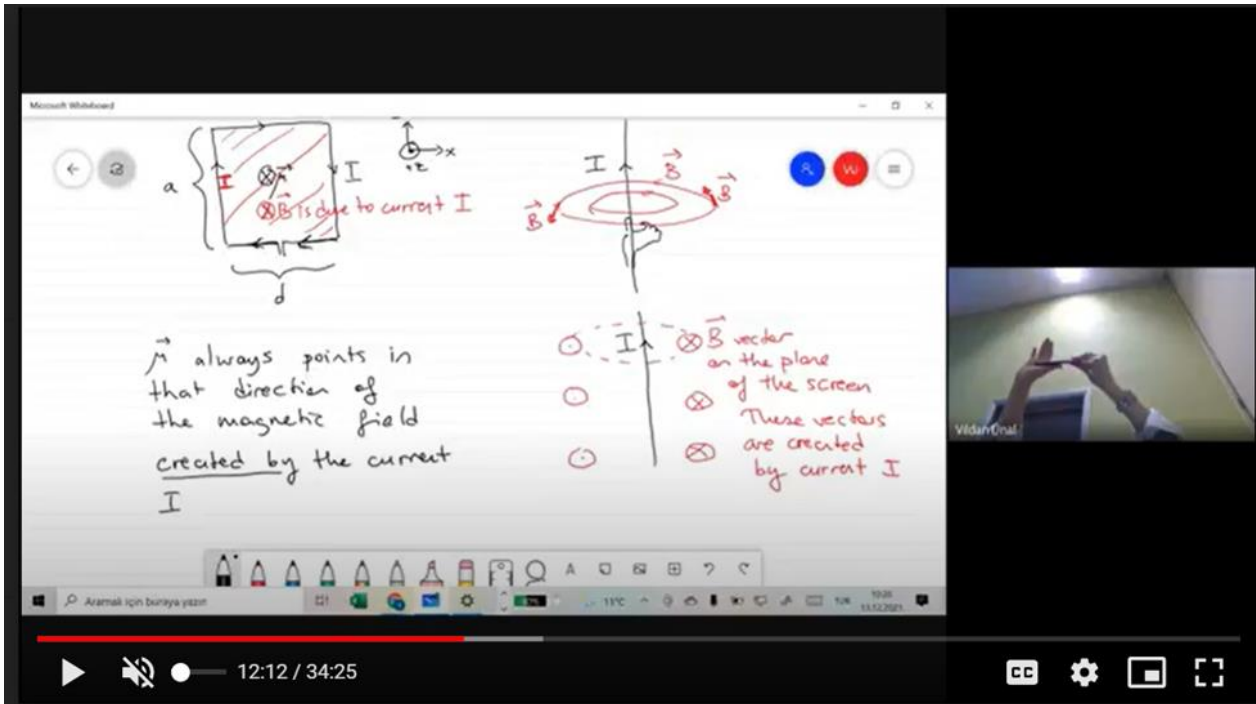 Microsoft Whiteboard
a
I
I
μ
B is due to current I
d
x
+z
I
B
B
B
μ always points in
that direction of
the magnetic field
created by the current
I
I
B vector
on the plane
of the screen
These vectors
are created
by current I
Vildan Ünal
W
A
Aramak için buraya yazın
11°C
10:20
13.12.2021
12:12 / 34:25
CC